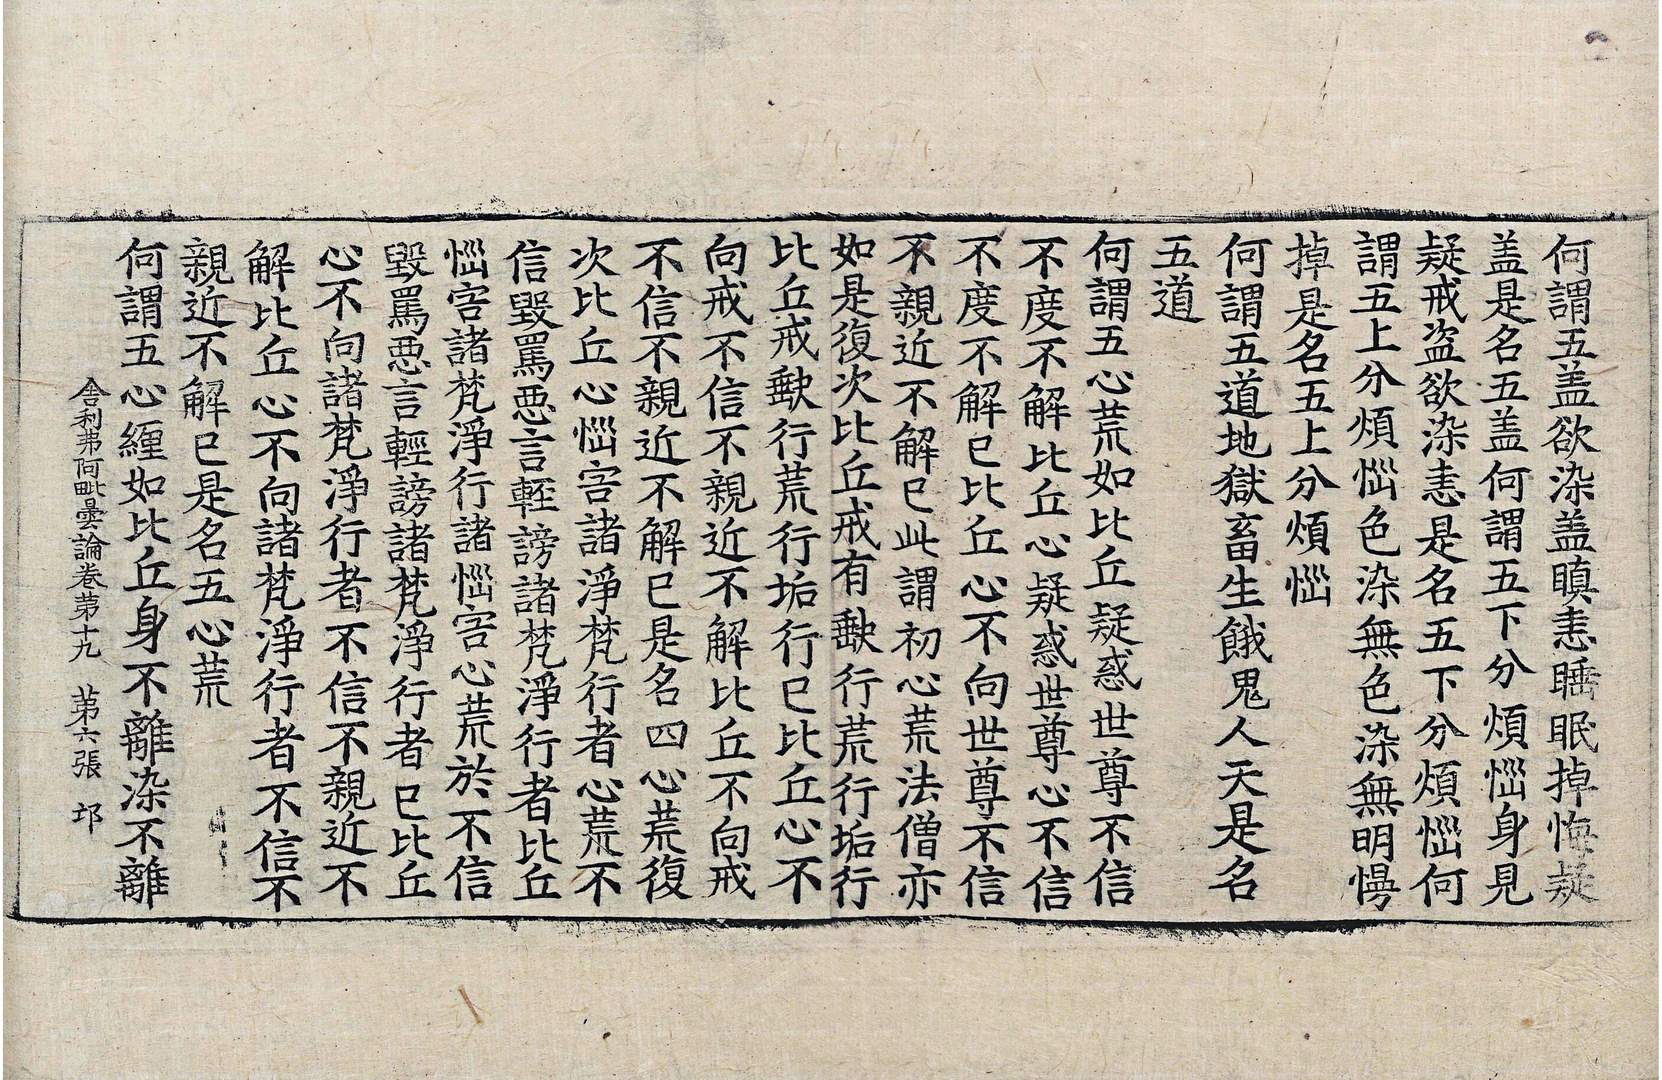 何謂五盖欲染盖瞋恚睡眠掉悔疑
盖是名五盖何謂五下分煩惱身見
疑戒盗欲染恚是名五下分煩惱何
謂五上分煩惱色染無色染無明慢
掉是名五上分煩惱
何謂五道地獄畜生餓鬼人天是名
五道
何謂五心荒如比丘疑惑世尊不信
不度不解比丘心疑惑世尊心不信
不度不解已比丘心不向世尊不信
不親近不解已此謂初心荒法僧亦
如是復次比丘戒有㱃行荒行垢行
比丘戒㱃行荒行垢行已比丘心不
向戒不信不親近不解比丘不向戒
不信不親近不解已是名四心荒復
次比丘心惱害諸淨梵行者心荒不
信毀罵惡言輕謗諸梵淨行者比丘
惱害諸梵淨行諸惱害心荒於不信
毀罵惡言輕謗諸梵淨行者已比丘
心不向諸梵淨行者不信不親近不
解比丘心不向諸梵淨行者不信不
親近不解已是名五心荒
何謂五心纏如比丘身不離染不離
舍利弗阿毗曇論卷第十九 第六張 邛